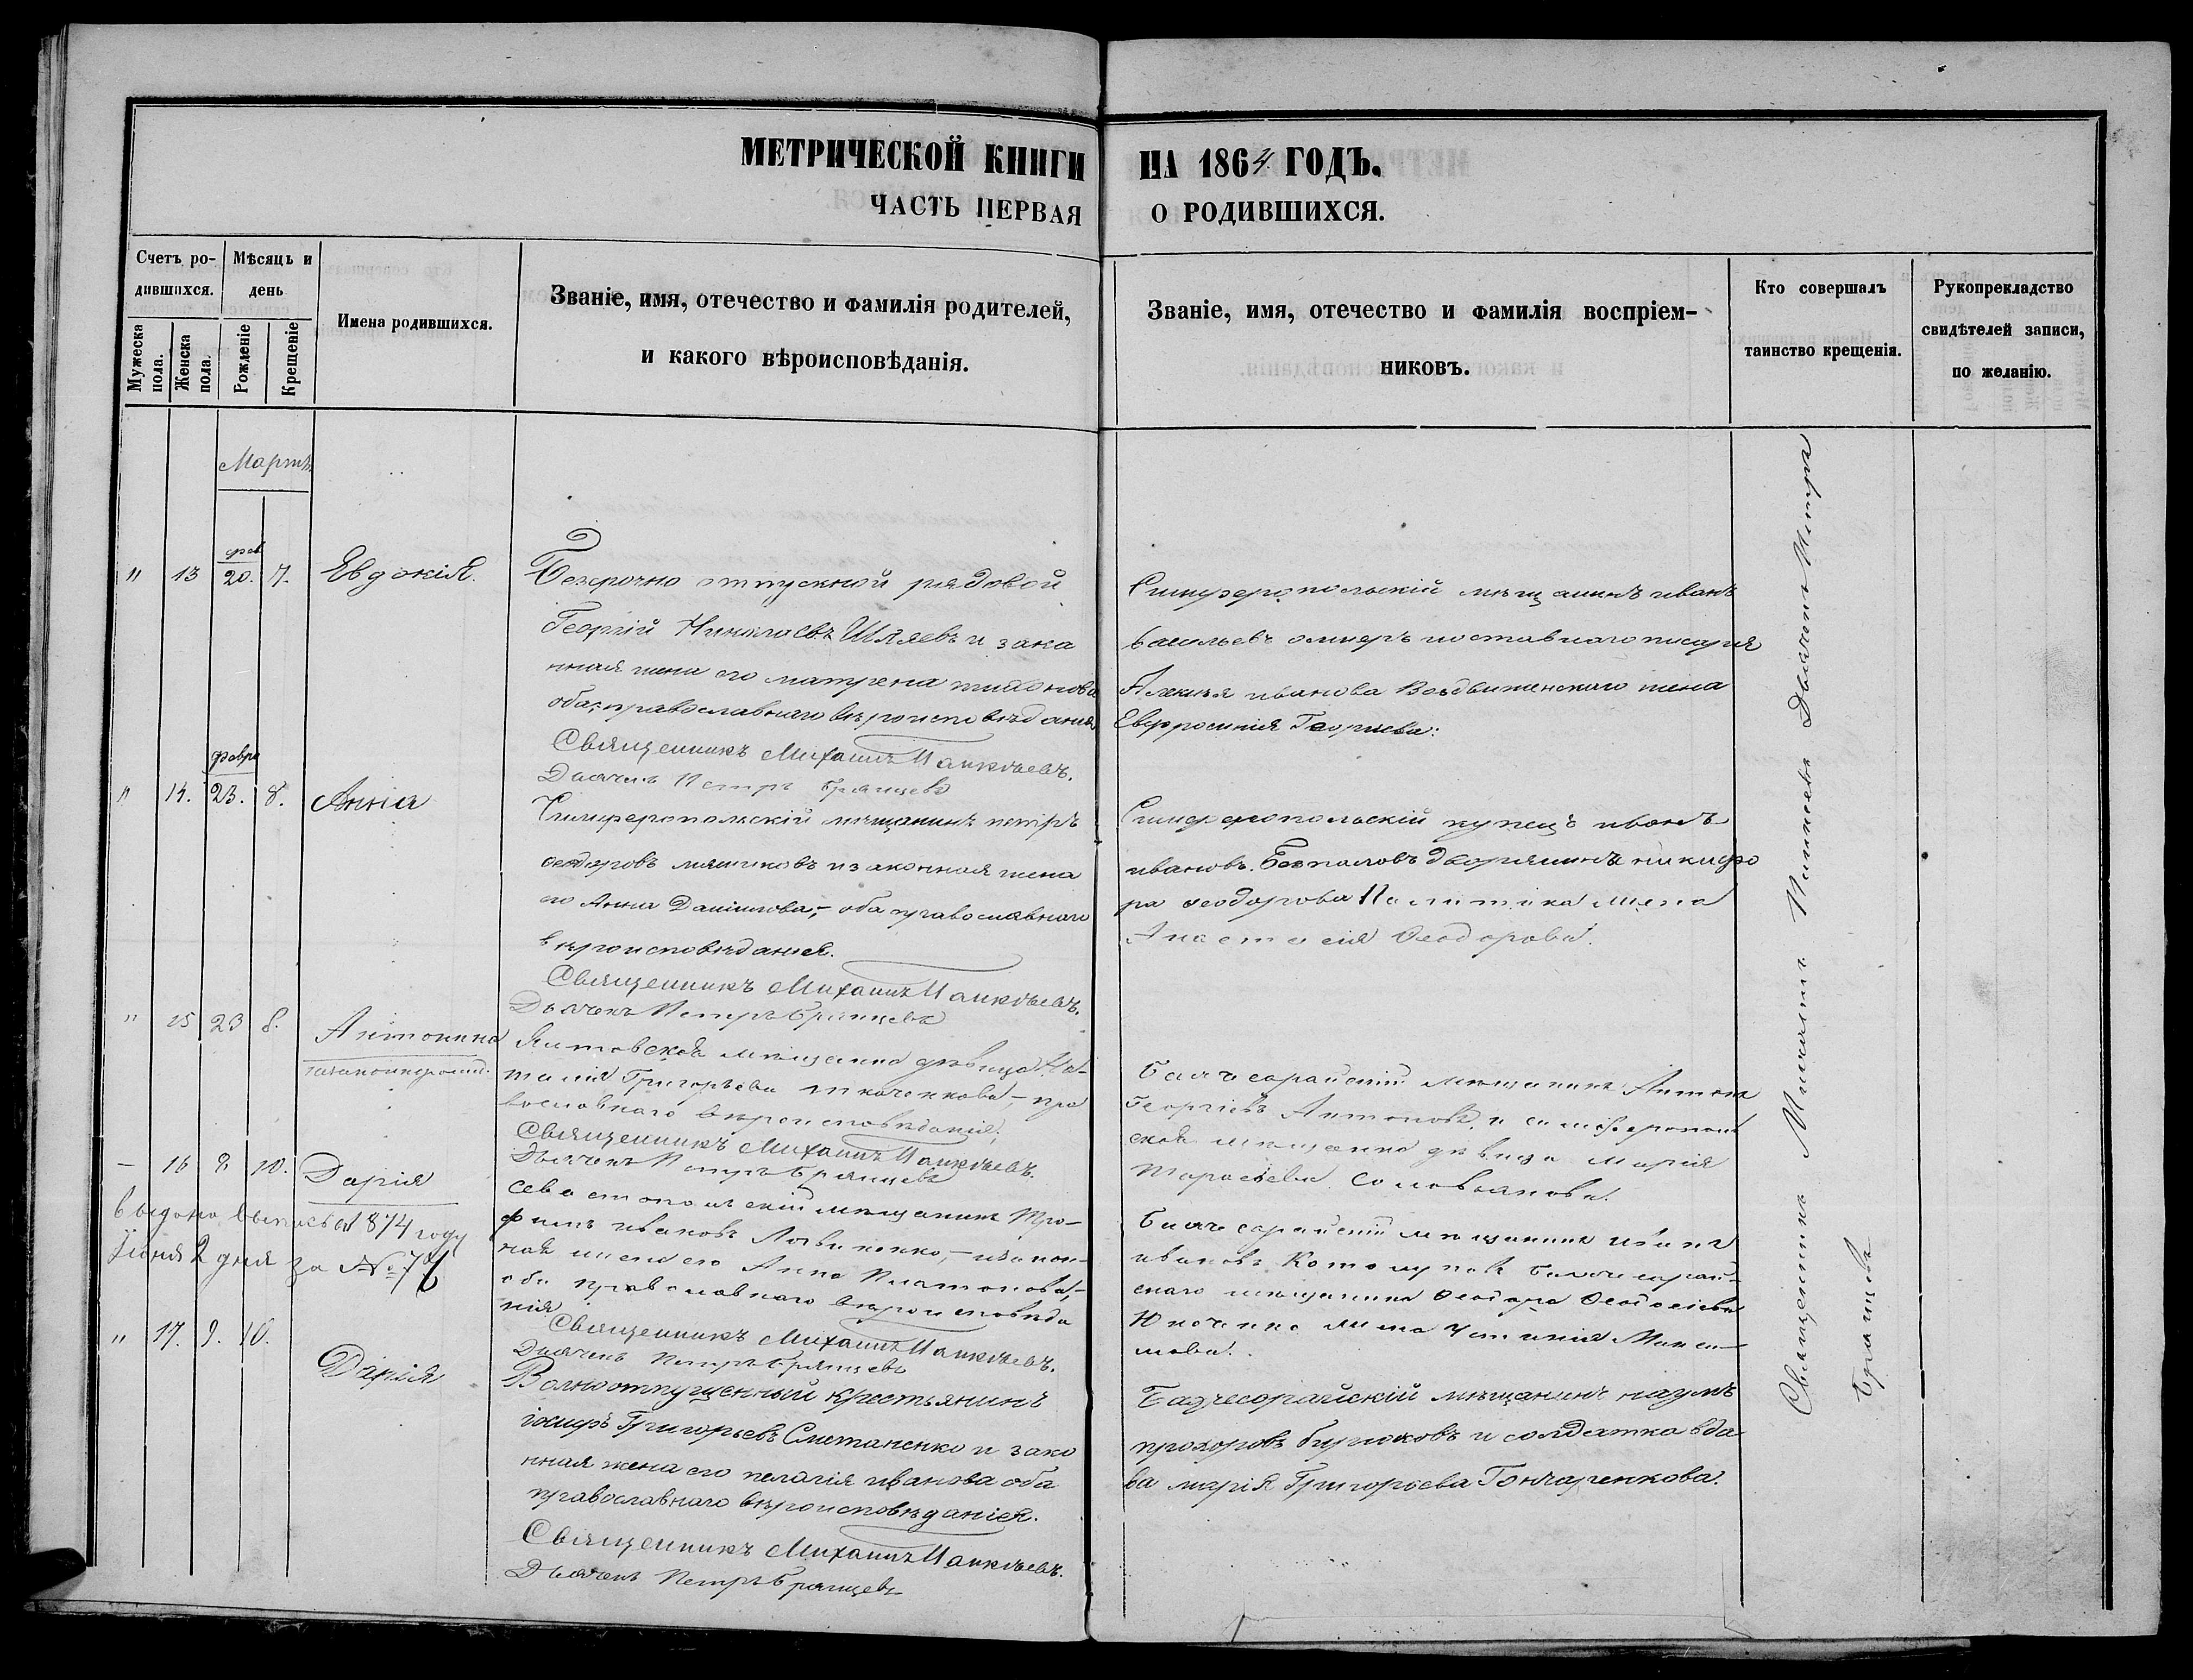 МЕТРИЧЕСКОЙ КНИГИ НА 1864 ГОДЪ.
ЧАСТЬ ПЕРВАЯ О РОДИВШИХСЯ.
Счетъ ро-
дившихся.
Мужеска
пола.
Женска
пола.
Мѣсяць и
день
Рожденіе
Крещеніе
Имена родившихся.
Званіе, имя, отечество и фамилія родителей,
и какого вѣроисповѣданія.
Званіе, имя, отечество и фамилія воспріем-
никовъ.
Кто совершалъ
таинство крещенія.
Рукоприкладство
свидѣтелей записи,
по желанію.
Мартъ
фев
" 13 20. 7. Евдокія.
Безсрочно отпускной рядовой
Георгій Николаевъ Шляевъ и зако
нная жена его матрена тихонова
оба православнаго вѣроисповѣданія
Священникъ Михаилъ
Дьячекъ Петръ Брянцевъ
Симферопольскій мѣщанинъ иванъ
васильевъ
иванова Воздвиженскаго жена
Евфросинія Георгіева.
февра
" 14. 23. 8. Анна
Симферопольскій мѣщанинъ петръ
ѳеодоровъ и законная жена
его Анна Даниилова, оба православнаго
вѣроисповѣданія.
Священникъ Михаилъ
Дьячекъ Петръ Брянцевъ
Симферопольскій купецъ иванъ
ивановъ Безпаловъ дворянина никифо
ра ѳеодорова жена
Анастасія Ѳеодорова.
" 15 23 8. Антонина
незаконнорожд.
мѣщанка дѣвица На-
талія Григорьева Ткаченкова, пра
вославнаго вѣроисповѣданія,
Священникъ Михаилъ
Дьячекъ Петръ Брянцевъ
Бахчесарайскій мѣщанинъ Антонъ
Георгіевъ Антоновъ, и симферополь
ская мѣщанка дѣвица Марія
Тарасьева
– 16 8 10. Дарія
выдана выпись 1874 году
Іюня 2 дня за №
Севастопольскій мѣщанинъ Тро-
фимъ ивановъ – и закон-
ная жена его Анна Платонова,
оба православнаго вѣроисповѣда
нія
Священникъ Михаилъ
Дьячекъ Петръ Брянцевъ
Бахчесарайскій мѣщанинъ иванъ
ивановъ Бахчесарай-
скаго мѣщанина Ѳеодора
жена Устинія Макси-
мова.
" 17. 9. 10. Дарія
Вольноотпущенный крестьянинъ
Григорьевъ Сметаненко и зако
нная жена его пелагія иванова оба
православнаго вѣроисповѣданія.
Священникъ Михаилъ
Дьячекъ Петръ Брянцевъ
Бахчесарайскій мѣщанинъ наумъ
прохоровъ бирюковъ и солдатка вдо
ва марія Григорьева Гончаренкова.
Священникъ Михаилъ Дьячекъ Петръ
Брянцевъ